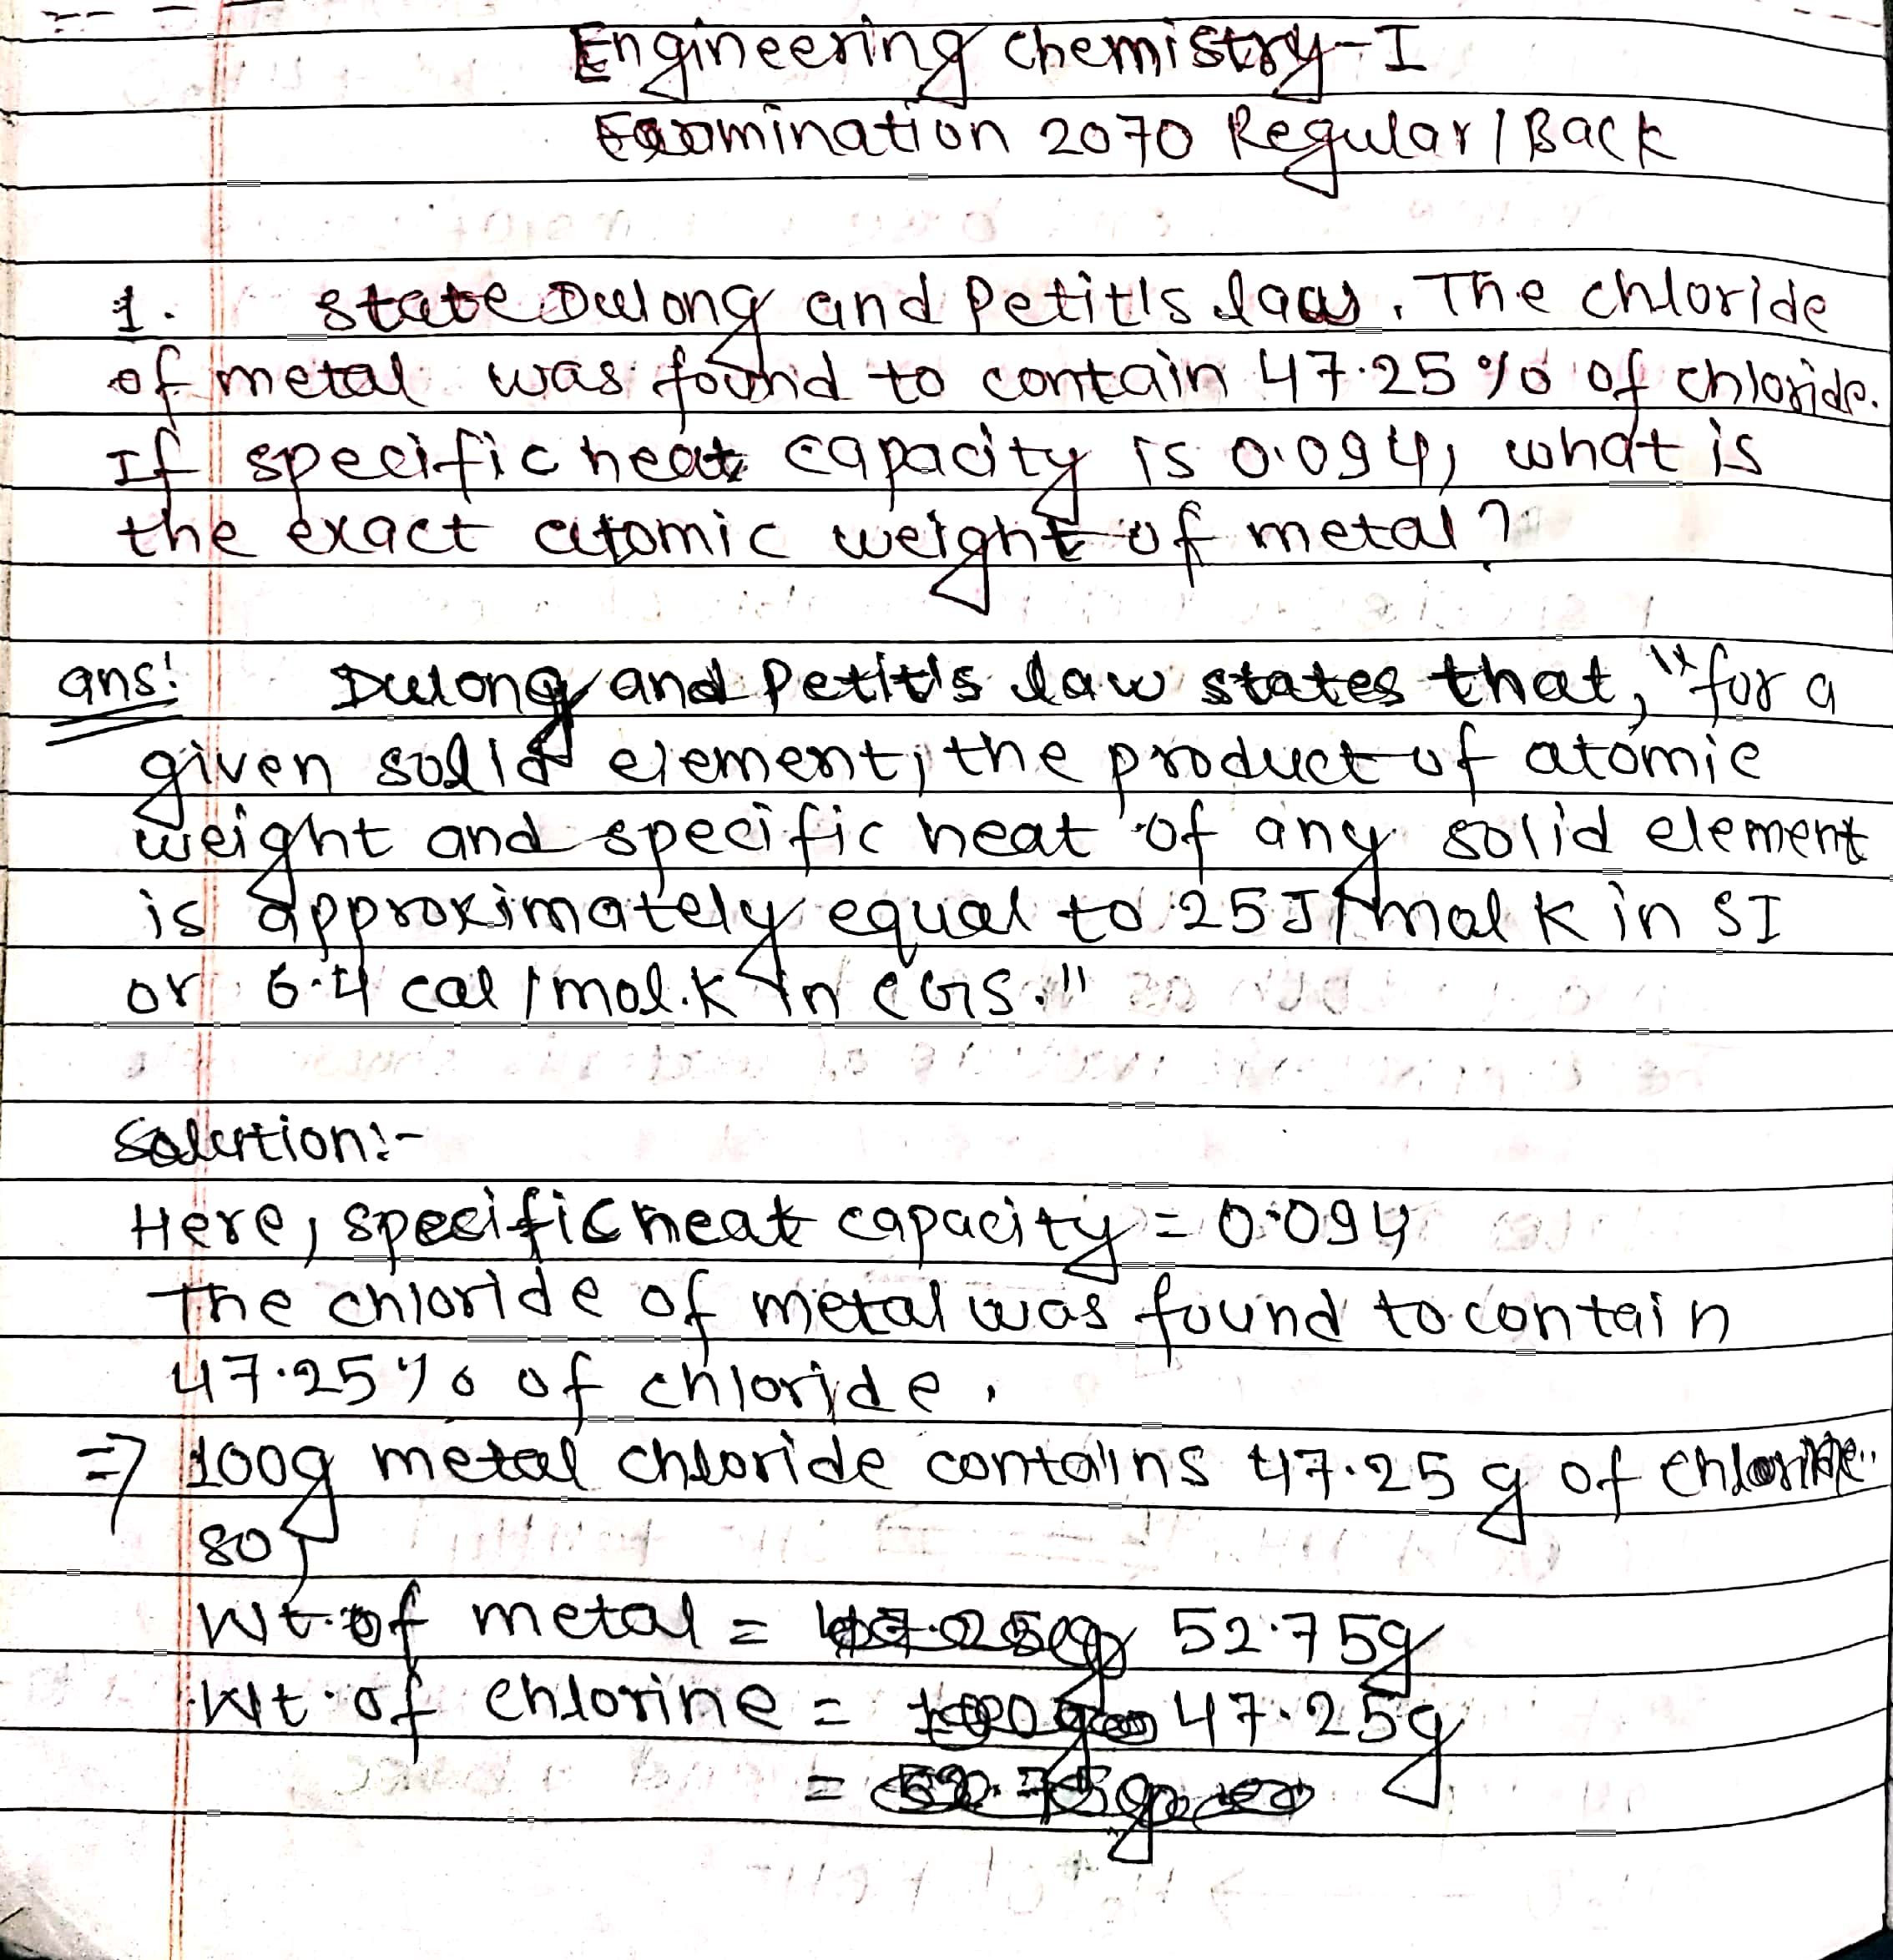 Engineering Chemistry-I
Examination 2070 Regular/Back
1. State Dulong and Petit's law. The chloride
of metal was found to contain 47.25% of chloride.
If specific heat capacity is 0.094, what is
the exact atomic weight of metal?
ans: Dulong and Petit's law states that, "for a
given solid element, the product of atomic
weight and specific heat of any solid element
is approximately equal to 25J/mol K in SI
or 6.4 cal/mol.K in CGS."
Solution:-
Here, specific heat capacity = 0.094
The chloride of metal was found to contain
47.25% of chloride.
=> 100g metal chloride contains 47.25 g of chlorine.
so,
Wt. of metal = 52.75g
Wt. of chlorine = 47.25g
=